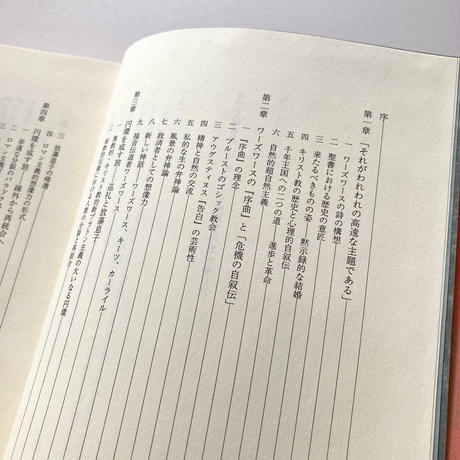 序
第一章 「それがわれわれの高遠な主題である」
一 ワーズワースの詩の構想
二 聖書における歴史の意匠
三 来たるべきものの姿――黙示録的な結婚
四 キリスト教の歴史と心理的自叙伝
五 千年王国への二つの道――進歩と革命
六 自然的超自然主義
第二章 ワーズワースの『序曲』と「危機の自叙伝」
一 『序曲』の理念
二 プルーストのゴシック教会
三 アウグスティヌス『告白』の芸術性
四 精神と自然の交流
五 私的な生の弁神論
六 風景の弁神論
七 救済者としての想像力
八 新しい神話
九 福音伝道者ワーズワース
第三章 円環を成す旅――巡礼と放蕩息子
三 放蕩息子の帰還
四 ロマン主義的想像力の形式
第四章 円環を成す旅